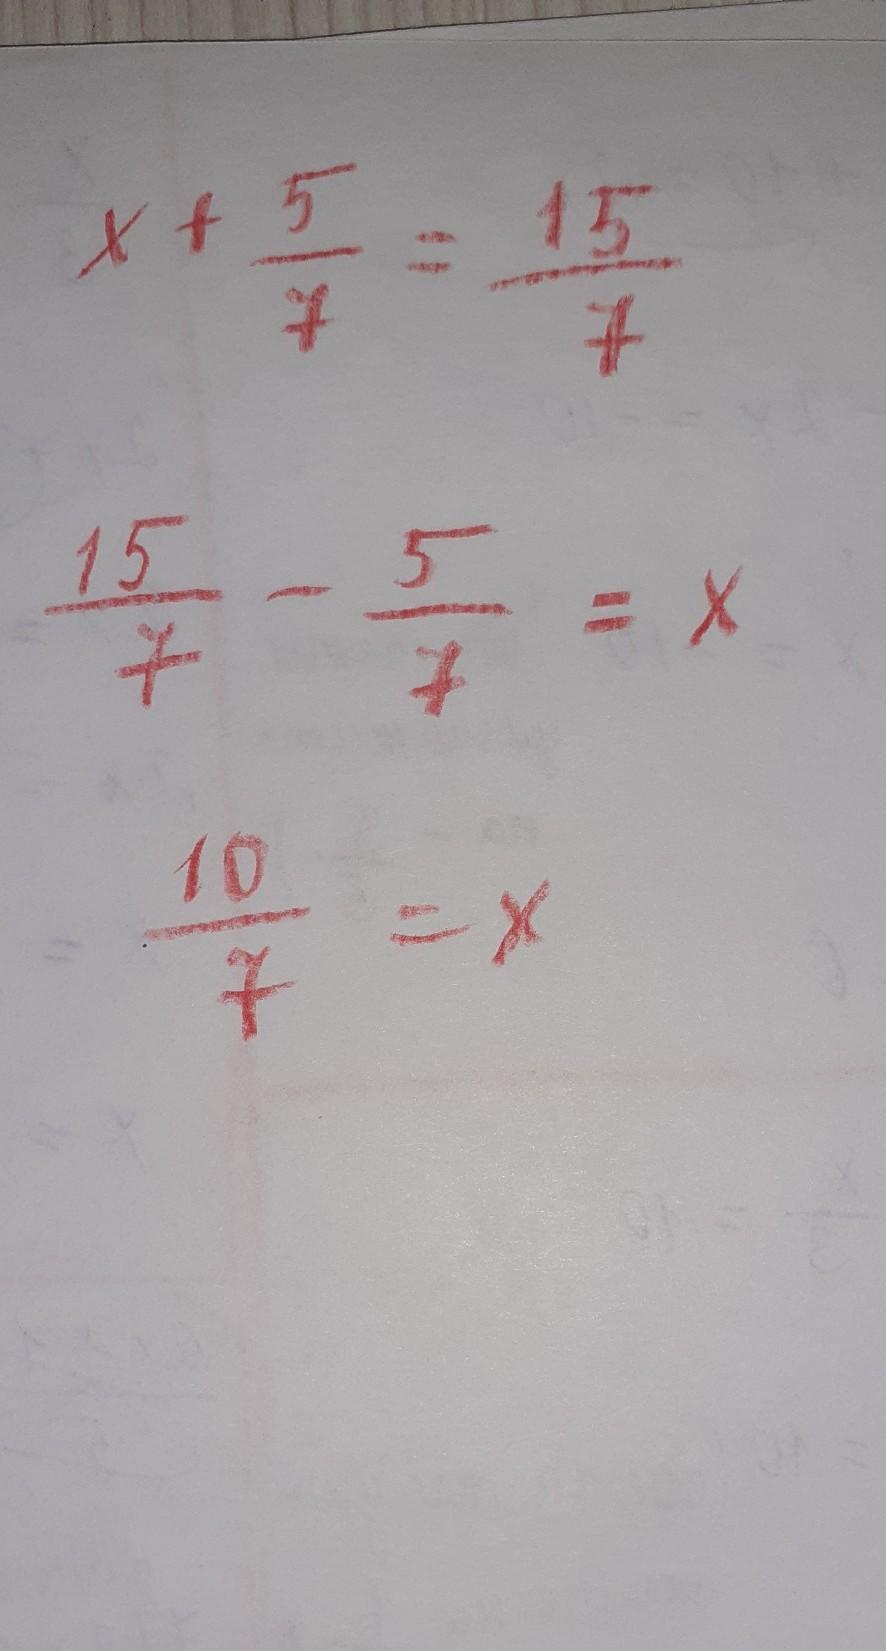 x + 5/7 = 15/7
15/7 - 5/7 = x
10/7 = x